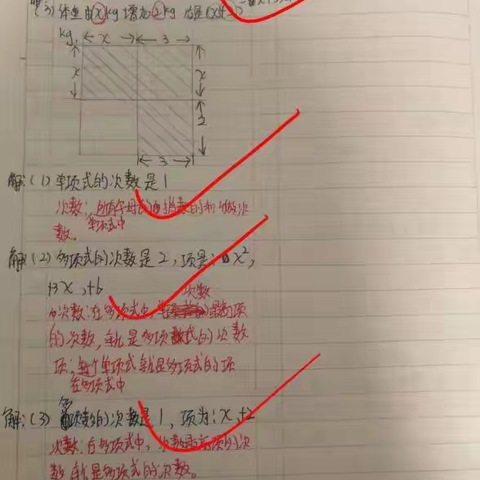 (3)体重由xkg增加2kg后是(x+2)
kg.
x 3
x x
2
3
解:(1)单项式的次数是1
次数:所有字母的指数的和叫做次
数。单项式中
解(2)多项式的次数是2,项是:x²,
+3x,+6
次数:在多项式中,次数最高项
的次数,就是多项式的次数
项:每个单项式就是多项式的项
在多项式中
解:(3)的次数是1,项为:x,+2
次数:在多项式中,次数最高项的次
数,就是多项式的次数。